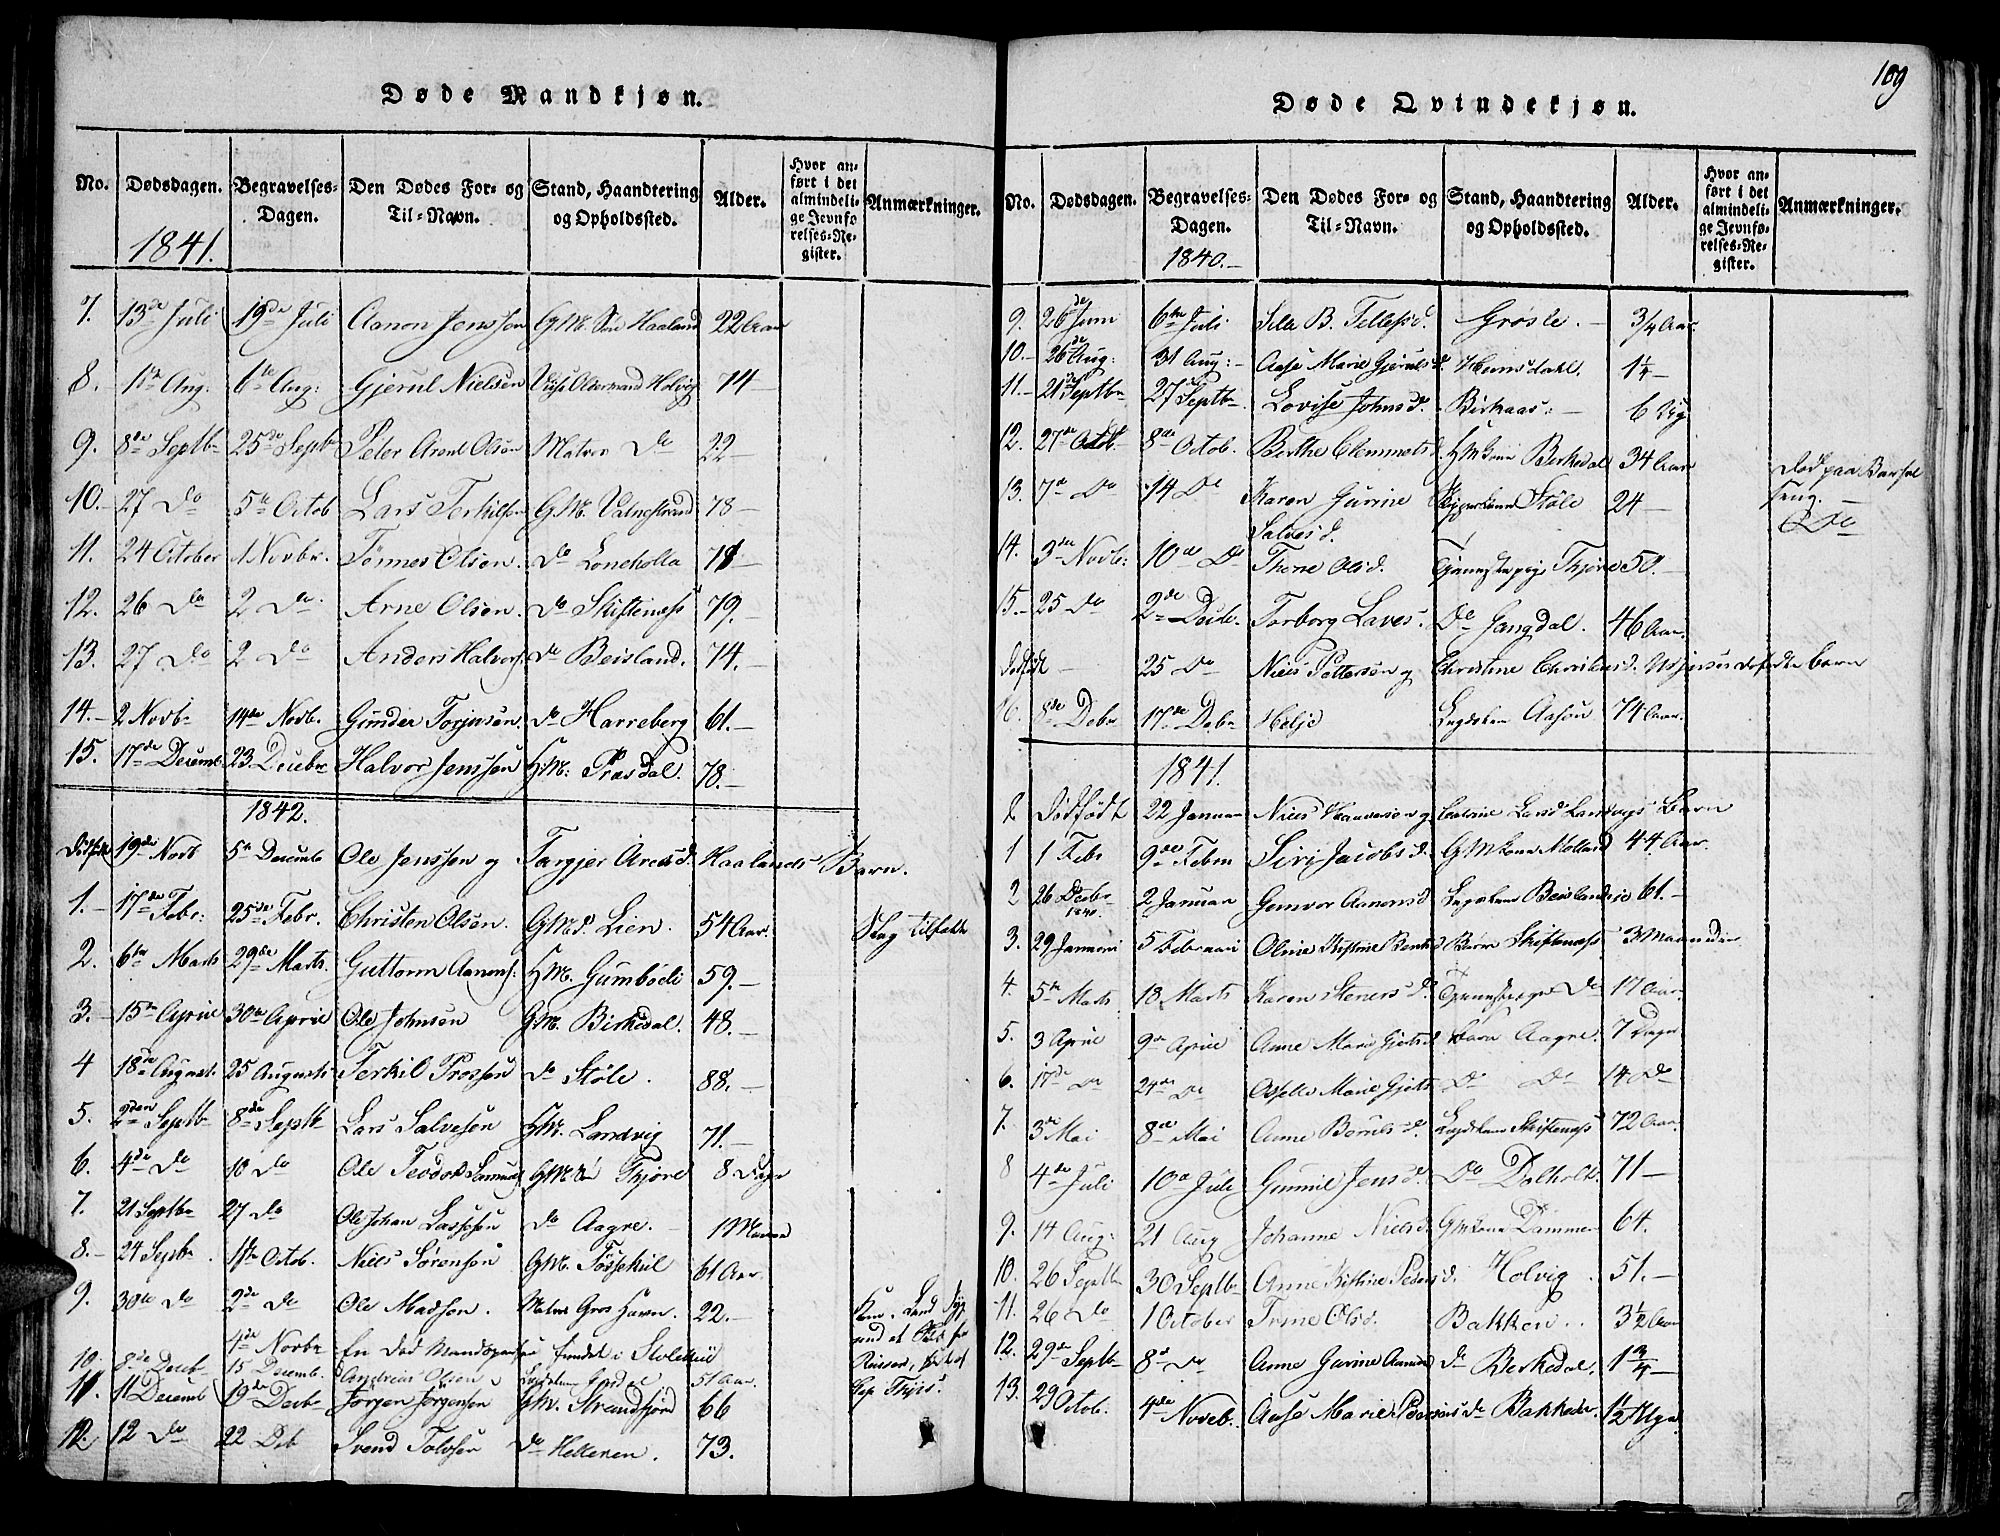 Døde Mandkjøn.
No. Dødsdagen. Begravelses-Dagen. Den Dødes For- og Til-Navn. Stand, Haandtering og Opholdssted. Alder. Hvor anført i det almindelige Jevnførelses-Register. Anmærkninger.
1841.
7. 13de Juli 19de Juli Aanon Jenssen GM. Søn Haaland 22 Aar
8. 1te Aug. 6te Aug: Gjerul Nielsen Holvig 74 —
9. 8de Septbr 25de Septb Peter Arent Olsen Matros Do 22 —
10. 27 Do 5te Octob Lars Terkilsen GM. Valnestrand 78 —
11. 24 October 1 Novbr. Tønnes Olsen. do Loneholla 71 —
12. 26 Do 2 Do. Arne Olsen. do Skiftenæss 79. —
13. 27 Do 2 Do Anders Halvors. do Beisland. 74. —
14. — 2 Novbr 14de Novb. Gunder Torjusen. do Harreberg 61. —
15. 17de Decemb 23 Decebr Halvor Jenssen HM: Præsdal. 78. —
1842.
Dødfødt 19de Novb 5te Decemb Ole Jenssen og Targjer Aresd. Haalands Barn.
1. — 17de Febr: 25de Febr. Christen Olsen. GMd. Lien. 54 Aar. Slag tilfælde
2. 6te Marts 29de Marts. Guttorm Aanons: HM. Gumbøde 59. —
3. — 15te Aprill 30te April Ole Johnsen GM. Birkedal. 48. —
4 18de August. 25 Augusti Terkil Prossen do Støle. 88. —
5. 2den Septb 8de Septb Lars Salvesen HM. Landvig 71. —
6. 4de Do 10 Do Ole Teodor GM Søn Thjøre 8 Dage
7. 21 Septbr 27 Do Ole Johan Lassesen do Aagre. — 1 Maaned
8. — 24 Sepbr. 1te Octob. Niels Sørensen GM. Fosseküil 61 Aar.
9. 30te Do 2de Do Ole Madsen. Matros Gros Havn. 22. —
4de Novbr En død Mandsperson fundet i
10. 8de Decb 15 Decemb. Andreas Olsen 51 Aar.
11. 11 Decemb 19de Decbr Jørgen Jørgensen GM. Strandfjord 66
12. 12 Do 22 Deb Svend Tolvsen do Helleren. 73.
Døde Qvindekjøn.
109
No. Dødsdagen. Begravelses-Dagen. Den Dødes For- og Til-Navn. Stand, Haandtering og Opholdssted. Alder. Hvor anført i det almindelige Jevnførelses-Register. Anmærkninger.
1840. —
9. 26de Juni 6te Juli Sille B. Tellefsd. Grøsle. — 3/4 Aar.
10. — 26de Aug: 31 Aug: — Aase Marie Gjerulsd. Homsdahl. 1 1/4 —
11. — 21de Septbr 27de Septbr Lovise Johnsd. Birkaas: — 6 Ug
12. 27de Octob. 8de Octob. Berthe Clemmetsd. HMkone Birkedal 34 Aar Død paa Barsel seng. —
13. 7de Do 14 Do Karen Gurine Salvesd. Støle 24 — Do
14. 3de Novb: 10de Do Thone Olsd. Tjenestepige Thjøre 50. —
15. — 25 Do 2de Decbr. Torborg Laves. Do Jangdal. 46 Aar.
Dødfødt — 25 Do Niels Pettersen og Christine Christensd. dødfødte barn
16. 8de Debr 17de Debr Helje Lægdslem Aasen 74 Aar.
1841.
Dødfødt 22 Januar Niels og Larsd Landvigs Barn
1 1 Febr 9de Febru Siri Jacobsd. GMkone Molland 44 Aar.
2 26 Decbr 1840. 2 Januar Gunvor Aanonsd Lægdslem Beisland 61. —
3. 29 Januari 5 Februari Barn Skiftenæss 3 Maaneder
4. 5te Marts 18 Marts Karen Stenersd. Tjenestepige Do 17 Aar.
5. 3 April 9de April Anne Marie Gjertsd Barn Aagre. 7 Dage
6. 17de Do 24de Do Marie Gjerts Do Do 14 Do
7. 3de Mai 8de Mai Anne Berulsd. Lægdslem Skiftenæss 72 Aar.
8 4de Juli 10de Juli Gunnil Jensd. Do Dalholt. 71 —
9. 14 Aug: 21 Aug Johanne Nielsd. GMkone Dammen 64.
10. 26 Septb 30 Septbr Anne Kirstine Pedersd. Holvig. 51. —
11. 26 Do 1 October Trine Olsd. Bakken. . 3 1/2 Aar
12. 29de Septb 8de Do Anne Gurine Aanonsd do Berkedal. 1 3/4 —
13. 29 Octob. 4de Novb. Aase Marie Pedersd. do Bakkedr 1 1/2 Uge